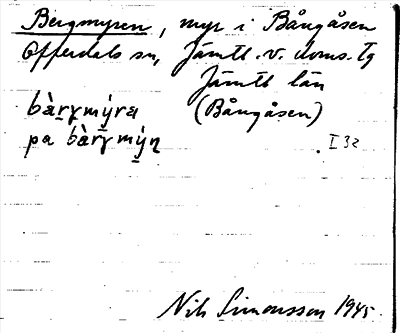 Bergmyren, myr i Bångåsen
Offerdals sn, Jämtl. v. doms. tg
Jämtl län
bàrγmýra (Bångåsen)
pa bàrγmýn I 32
Nils Simonsson 1945.